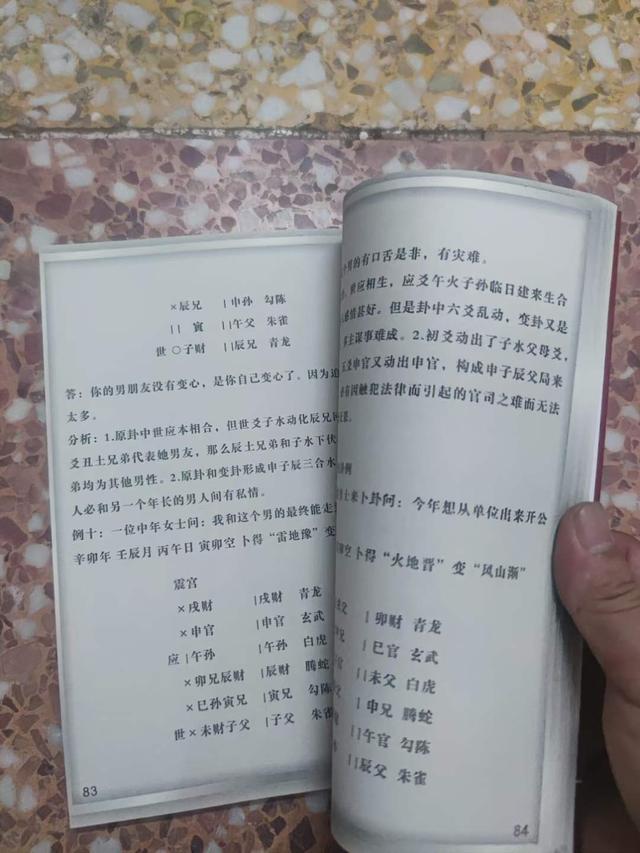 ×辰兄 |申孙 勾陈
|| 寅 ||午父 朱雀
世 ○子财 ||辰兄 青龙
答：你的男朋友没有变心，是你自己变心了。因为追
太多。
分析：1.原卦中世应本相合，但世爻子水动化辰兄
爻丑土兄弟代表她男友，那么辰土兄弟和子水下伏
弟均为其他男性。2.原卦和变卦形成申子辰三合水
人必和另一个年长的男人间有私情。
例十：一位中年女士问：我和这个男的最终能走
辛卯年 壬辰月 丙午日 寅卯空 卜得“雷地豫”变
震宫
×戌财 |戌财 青龙
×申官 |申官 玄武
应 |午孙 |午孙 白虎
×卯兄辰财 ||辰财 腾蛇
×巳孙寅兄 |寅兄 勾陈
世×未财子父 |子父 朱雀
83
个男的有口舌是非，有灾难。
世应相生，应爻午火子孙临日建来生合
感情甚好。但是卦中六爻乱动，变卦又是
多主谋事难成。2.初爻动出了子水父母爻，
五爻申官又动出申官，构成申子辰父局来
有因触犯法律而引起的官司之难而无法
例
士来卜卦问：今年想从单位出来开公
卯空 卜得“火地晋”变“风山渐”
父 |卯财 青龙
兄 |巳官 玄武
官 ||未父 白虎
|申兄 腾蛇
||午官 勾陈
||辰父 朱雀
84